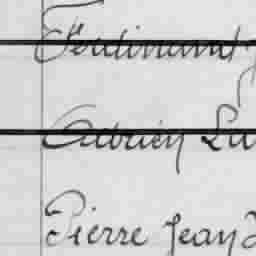 Ferdinand
Adrien Lu
Pierre Jean